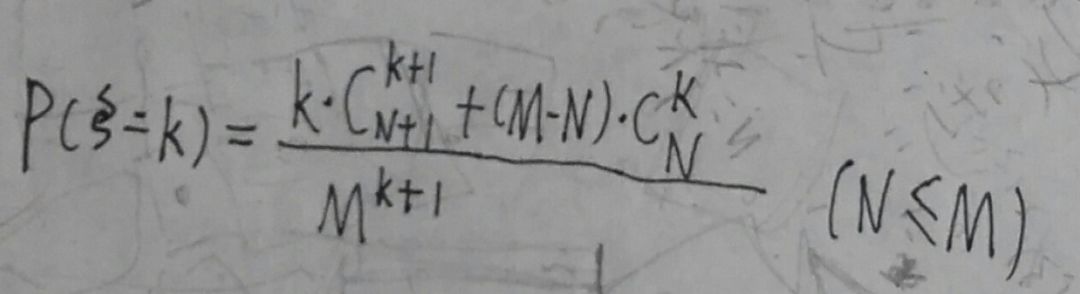 P(ξ=k) = \frac{k·C_{N+1}^{k+1} + (M-N)·C_N^k}{M^{k+1}} (N≤M)